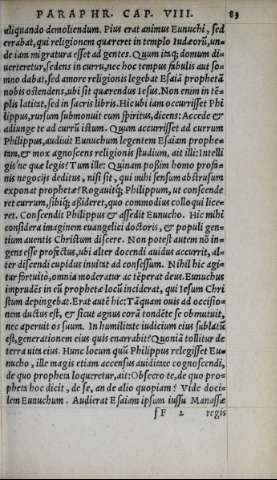 PARAPHR. CAP. VIII. 83
aliquando demoliendum. Pius erat animus Eunuchi, sed
errabat, qui religionem quæreret in templo Iudæorū, un-
de iam migratura esset ad gentes. Quum itaq; domum di-
uerteretur, sedens in curru, nec hoc tempus fabulis aut so-
mno dabat, sed amore religionis legebat Esaiā prophetā
nobis ostendens, ubi sit quærendus Iesus. Non enim in tē-
plis latitat, sed in sacris libris. Hic ubi iam occurrisset Phi
lippus, rursum submonuit eum spiritus, dicens: Accede &
adiunge te ad currū istum. Quum accurrisset ad currum
Philippus, audiuit Eunuchum legentem Esaiam prophe-
tam, & mox agnoscens religionis studium, ait illi: Intelli
gis'ne quæ legis? Tum ille: Quinam possim homo profa-
nis negocijs deditus, nisi sit, qui mihi sensum abstrusum
exponat prophetæ? Rogauitq; Philippum, ut conscende
ret currum, sibiq; assideret, quo commodius colloqui lice-
ret. Conscendit Philippus & assedit Eunucho. Hic mihi
considera imaginem euangelici doctoris, & populi gen-
tium auentis Christum discere. Non potest autem nō in-
gens esse profectus, ubi alter docendi auidus accurrit, al-
ter discendi cupidus inuitat ad consessum. Nihil hic agi-
tur fortuitò, omnia moderatur ac tēperat deus. Eunuchus
imprudēs in eū prophetæ locū inciderat, qui Iesum Chri
stum depingebat. Erat autē hic: Tāquam ouis ad occisio-
nem ductus est, & sicut agnus corā tondēte se obmutuit,
nec aperuit os suum. In humilitate iudicium eius sublatū
est, generationem eius quis enarrabit? Quoniā tollitur de
terra uita eius. Hunc locum quū Philippus relegisset Eu-
nucho, ille magis etiam accensus auiditate cognoscendi,
de quo propheta loqueretur, ait: Obsecro te, de quo pro-
pheta hoc dicit, de se, an de alio quopiam? Vide doci-
lem Eunuchum. Audierat Esaiam ipsum iussu Manassæ
fF 2 regis